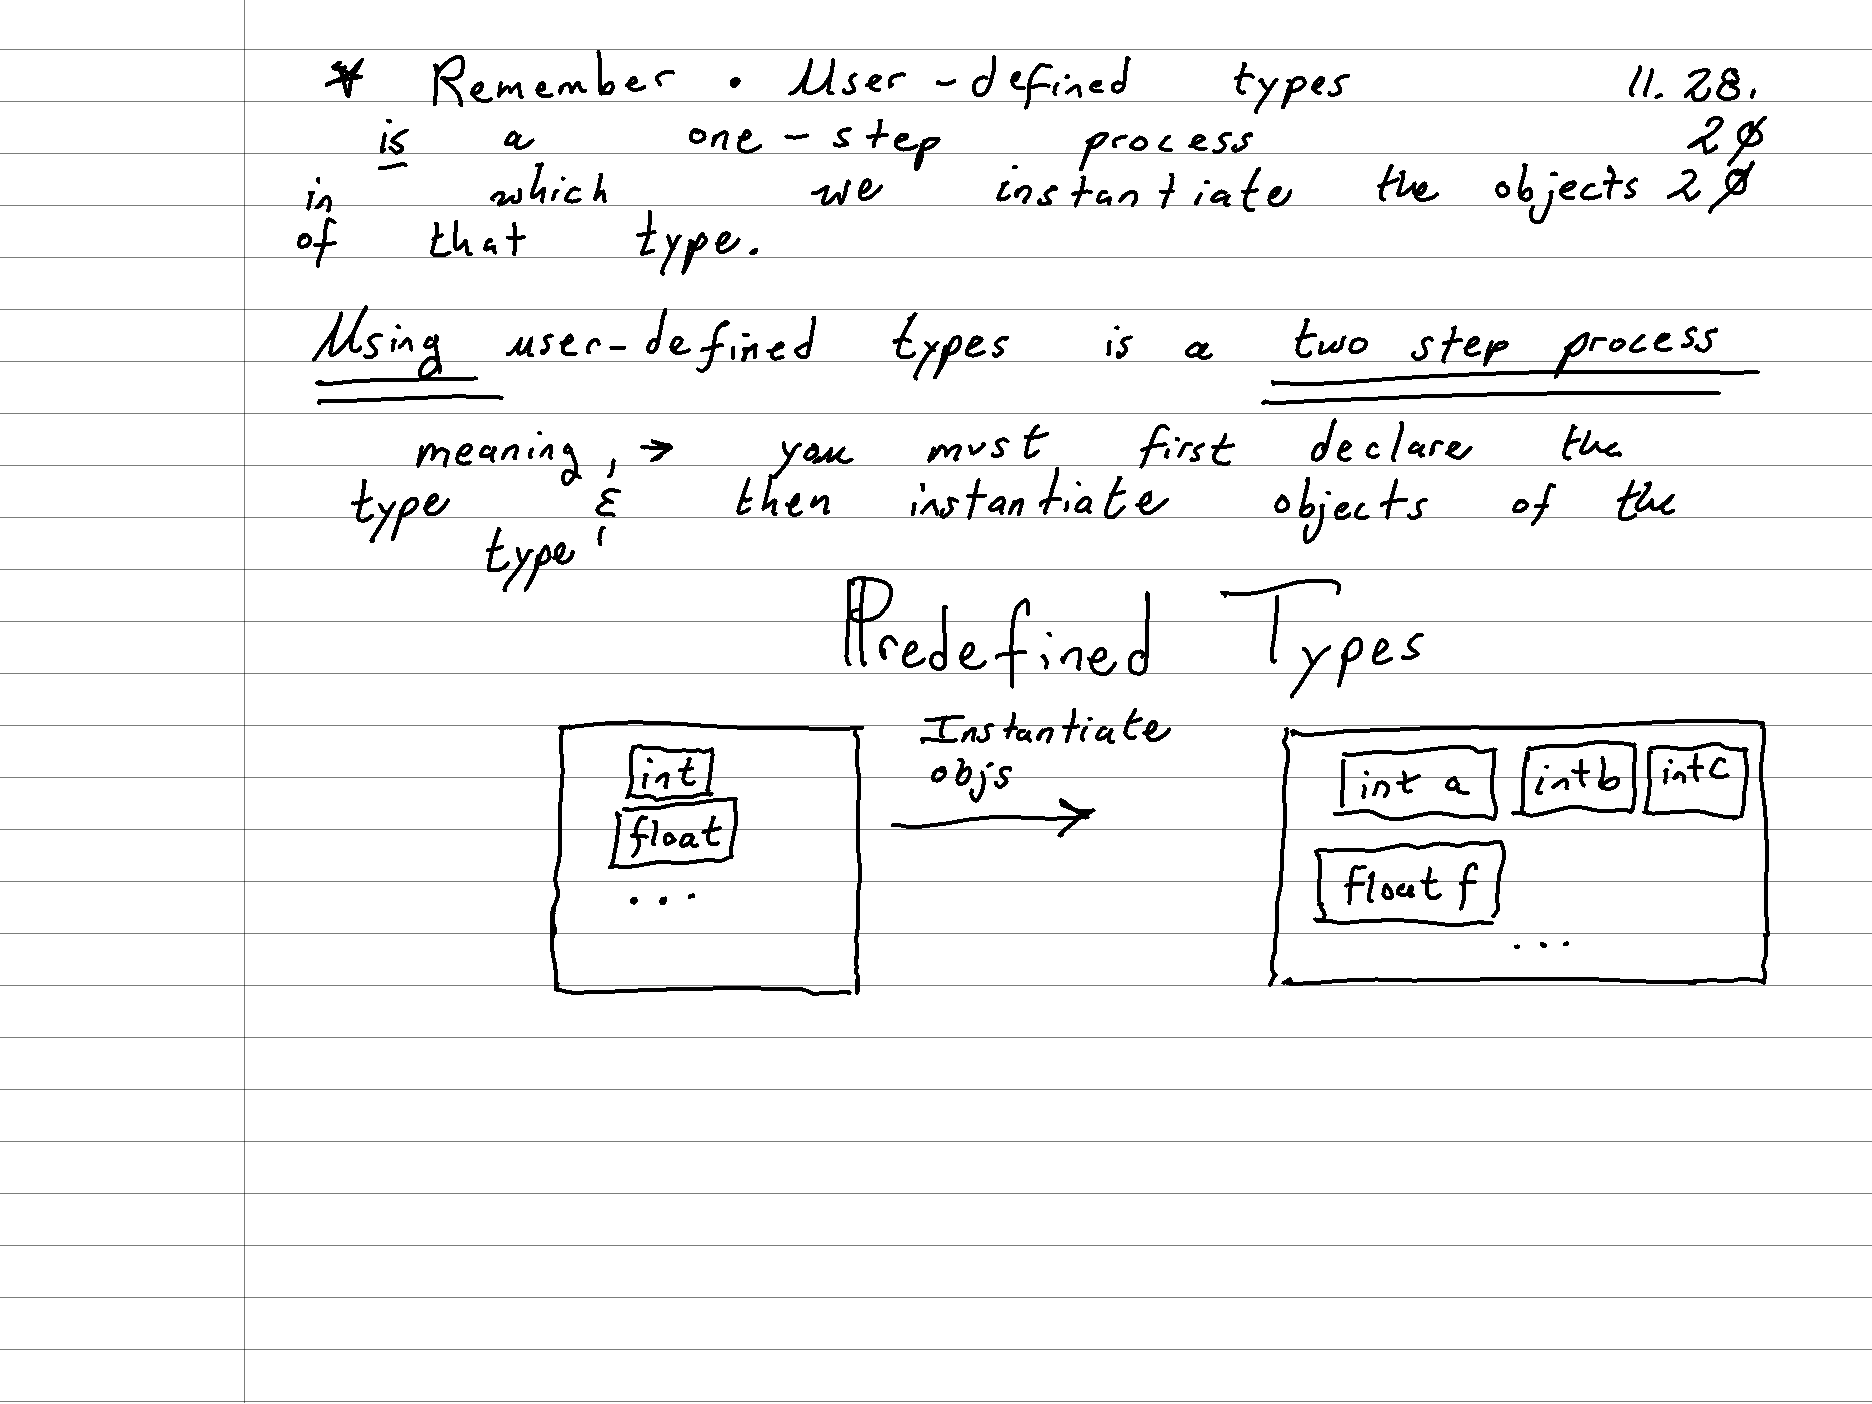 * Remember • User-defined types 11.28.
is a one-step process 20
in which we instantiate the objects 20
of that type.
Using user-defined types is a two step process
meaning, → you must first declare the
type & then instantiate objects of the
type
Predefined Types
Instantiate
objs
int
float
...
int a int b int c
float f
...